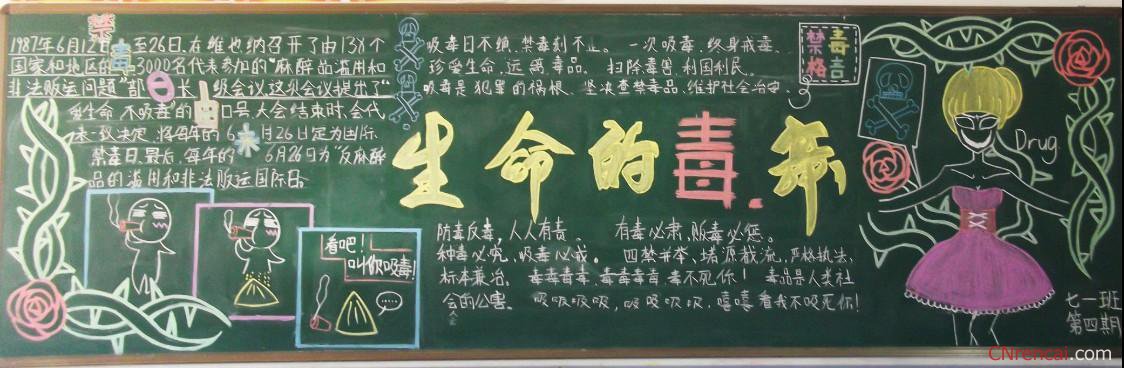 禁毒
1987年6月12日至26日,在维也纳召开了由138个
国家和地区的3000名代表参加的“麻醉品滥用和
非法贩运问题”部长级会议,这次会议提出了“
爱生命,不吸毒”的口号,大会结束时,会代
表一致决定,将每年的6月26日定为国际
禁毒日,最后,每年的6月26日为“反麻醉
品的滥用和非法贩运国际日。
吸毒日不绝,禁毒刻不止。一次吸毒,终身戒毒。
珍爱生命,远离毒品。扫除毒害,利国利民。
吸毒是犯罪的祸根,坚决查禁毒品,维护社会治安。
禁毒
格言
生命的毒
防毒反毒,人人有责。有毒必肃,贩毒必惩。
种毒必究,吸毒必戒。四禁并举、堵源截流,严格执法,
标本兼治。毒毒毒毒,毒毒毒毒,毒不死你!毒品是人类社
会的公害。吸吸吸吸,吸吸吸吸,嘻嘻看我不吸死你!
看吧!
叫你吸毒!
Drug
七一班
第四期
CNrencai.com